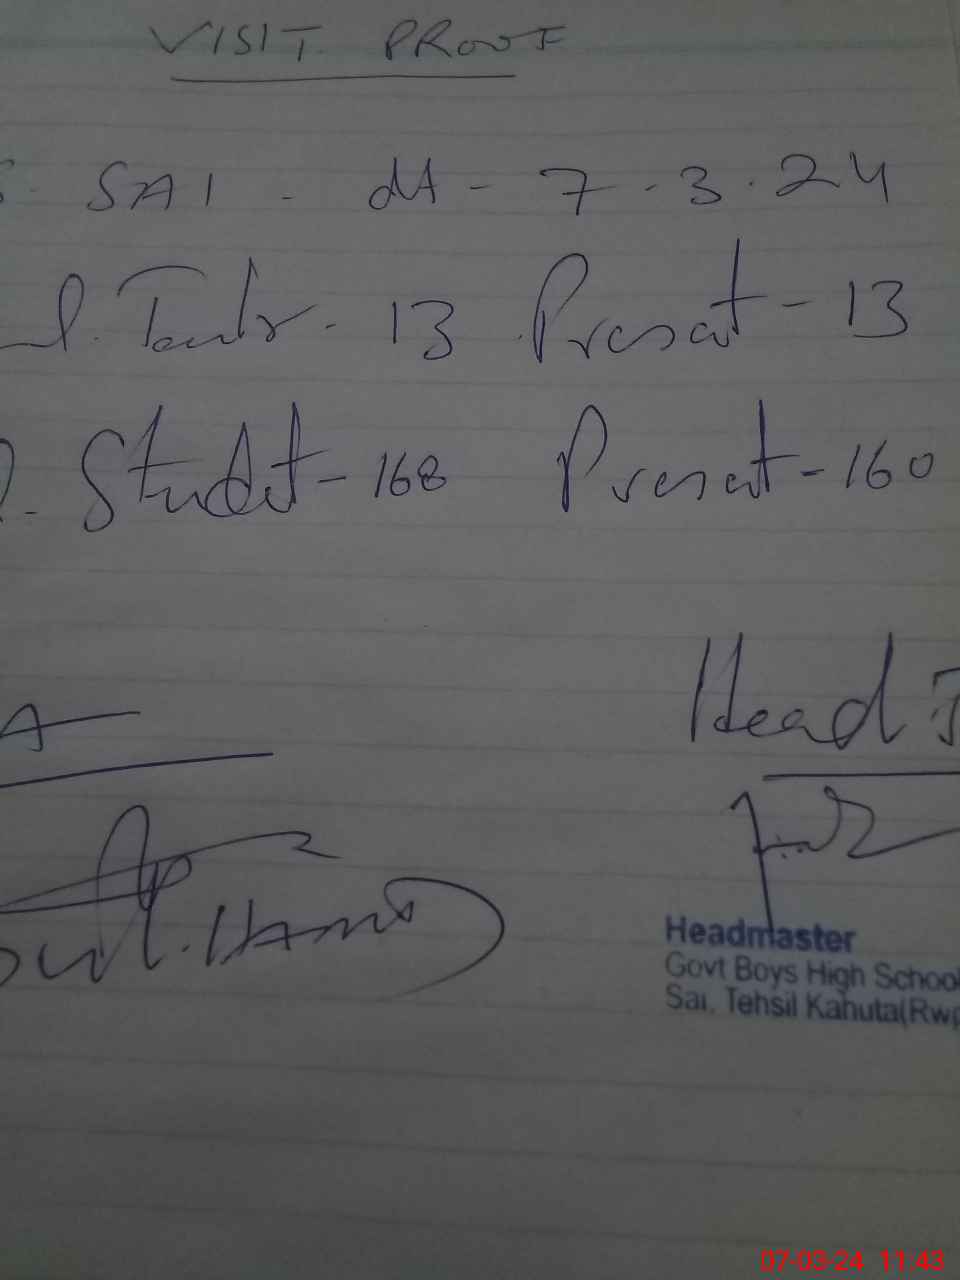 VISIT PROOF
SAI - dt - 7.3.24
13 Present - 13
Student - 168 Present - 160
Head
Headmaster
Govt Boys High School
Sai, Tehsil Kahuta(Rwp
07-03-24 11:43